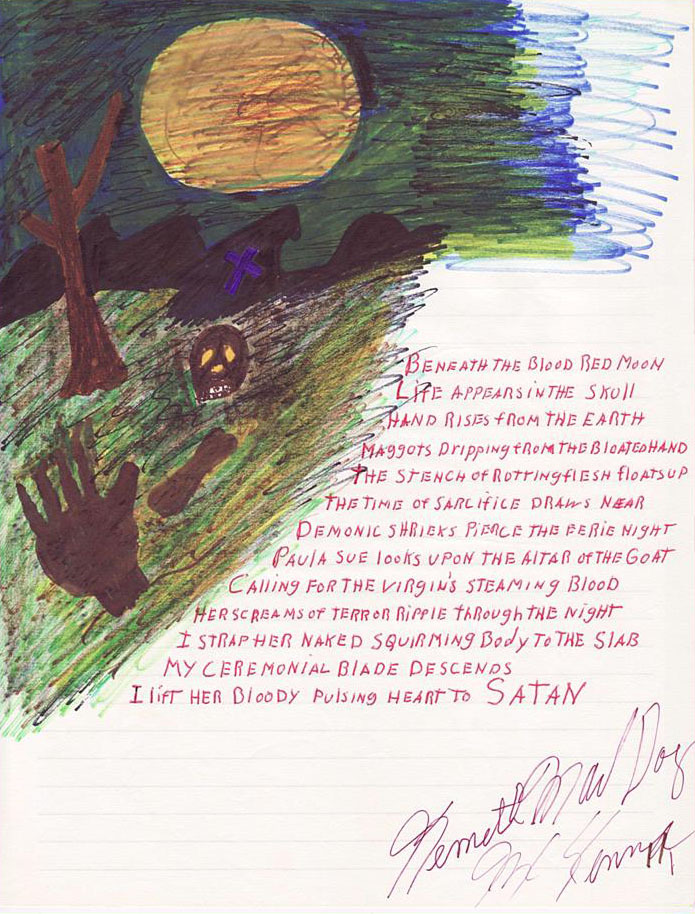 BENEATH THE BLOOD RED MOON
LIFE APPEARS IN THE SKULL
HAND RISES FROM THE EARTH
MAGGOTS DRIPPING FROM THE BLOATED HAND
THE STENCH OF ROTTING FLESH FLOATS UP
THE TIME OF SARCIFICE DRAWS NEAR
DEMONIC SHRIEKS PIERCE THE EERIE NIGHT
PAULA SUE LOOKS UPON THE ALTAR OF THE GOAT
CALLING FOR THE VIRGIN'S STEAMING BLOOD
HER SCREAMS OF TERROR RIPPLE THROUGH THE NIGHT
I STRAP HER NAKED SQUIRMING BODY TO THE SLAB
MY CEREMONIAL BLADE DESCENDS
I LIFT HER BLOODY PULSING HEART TO SATAN
Kenneth Mad Dog